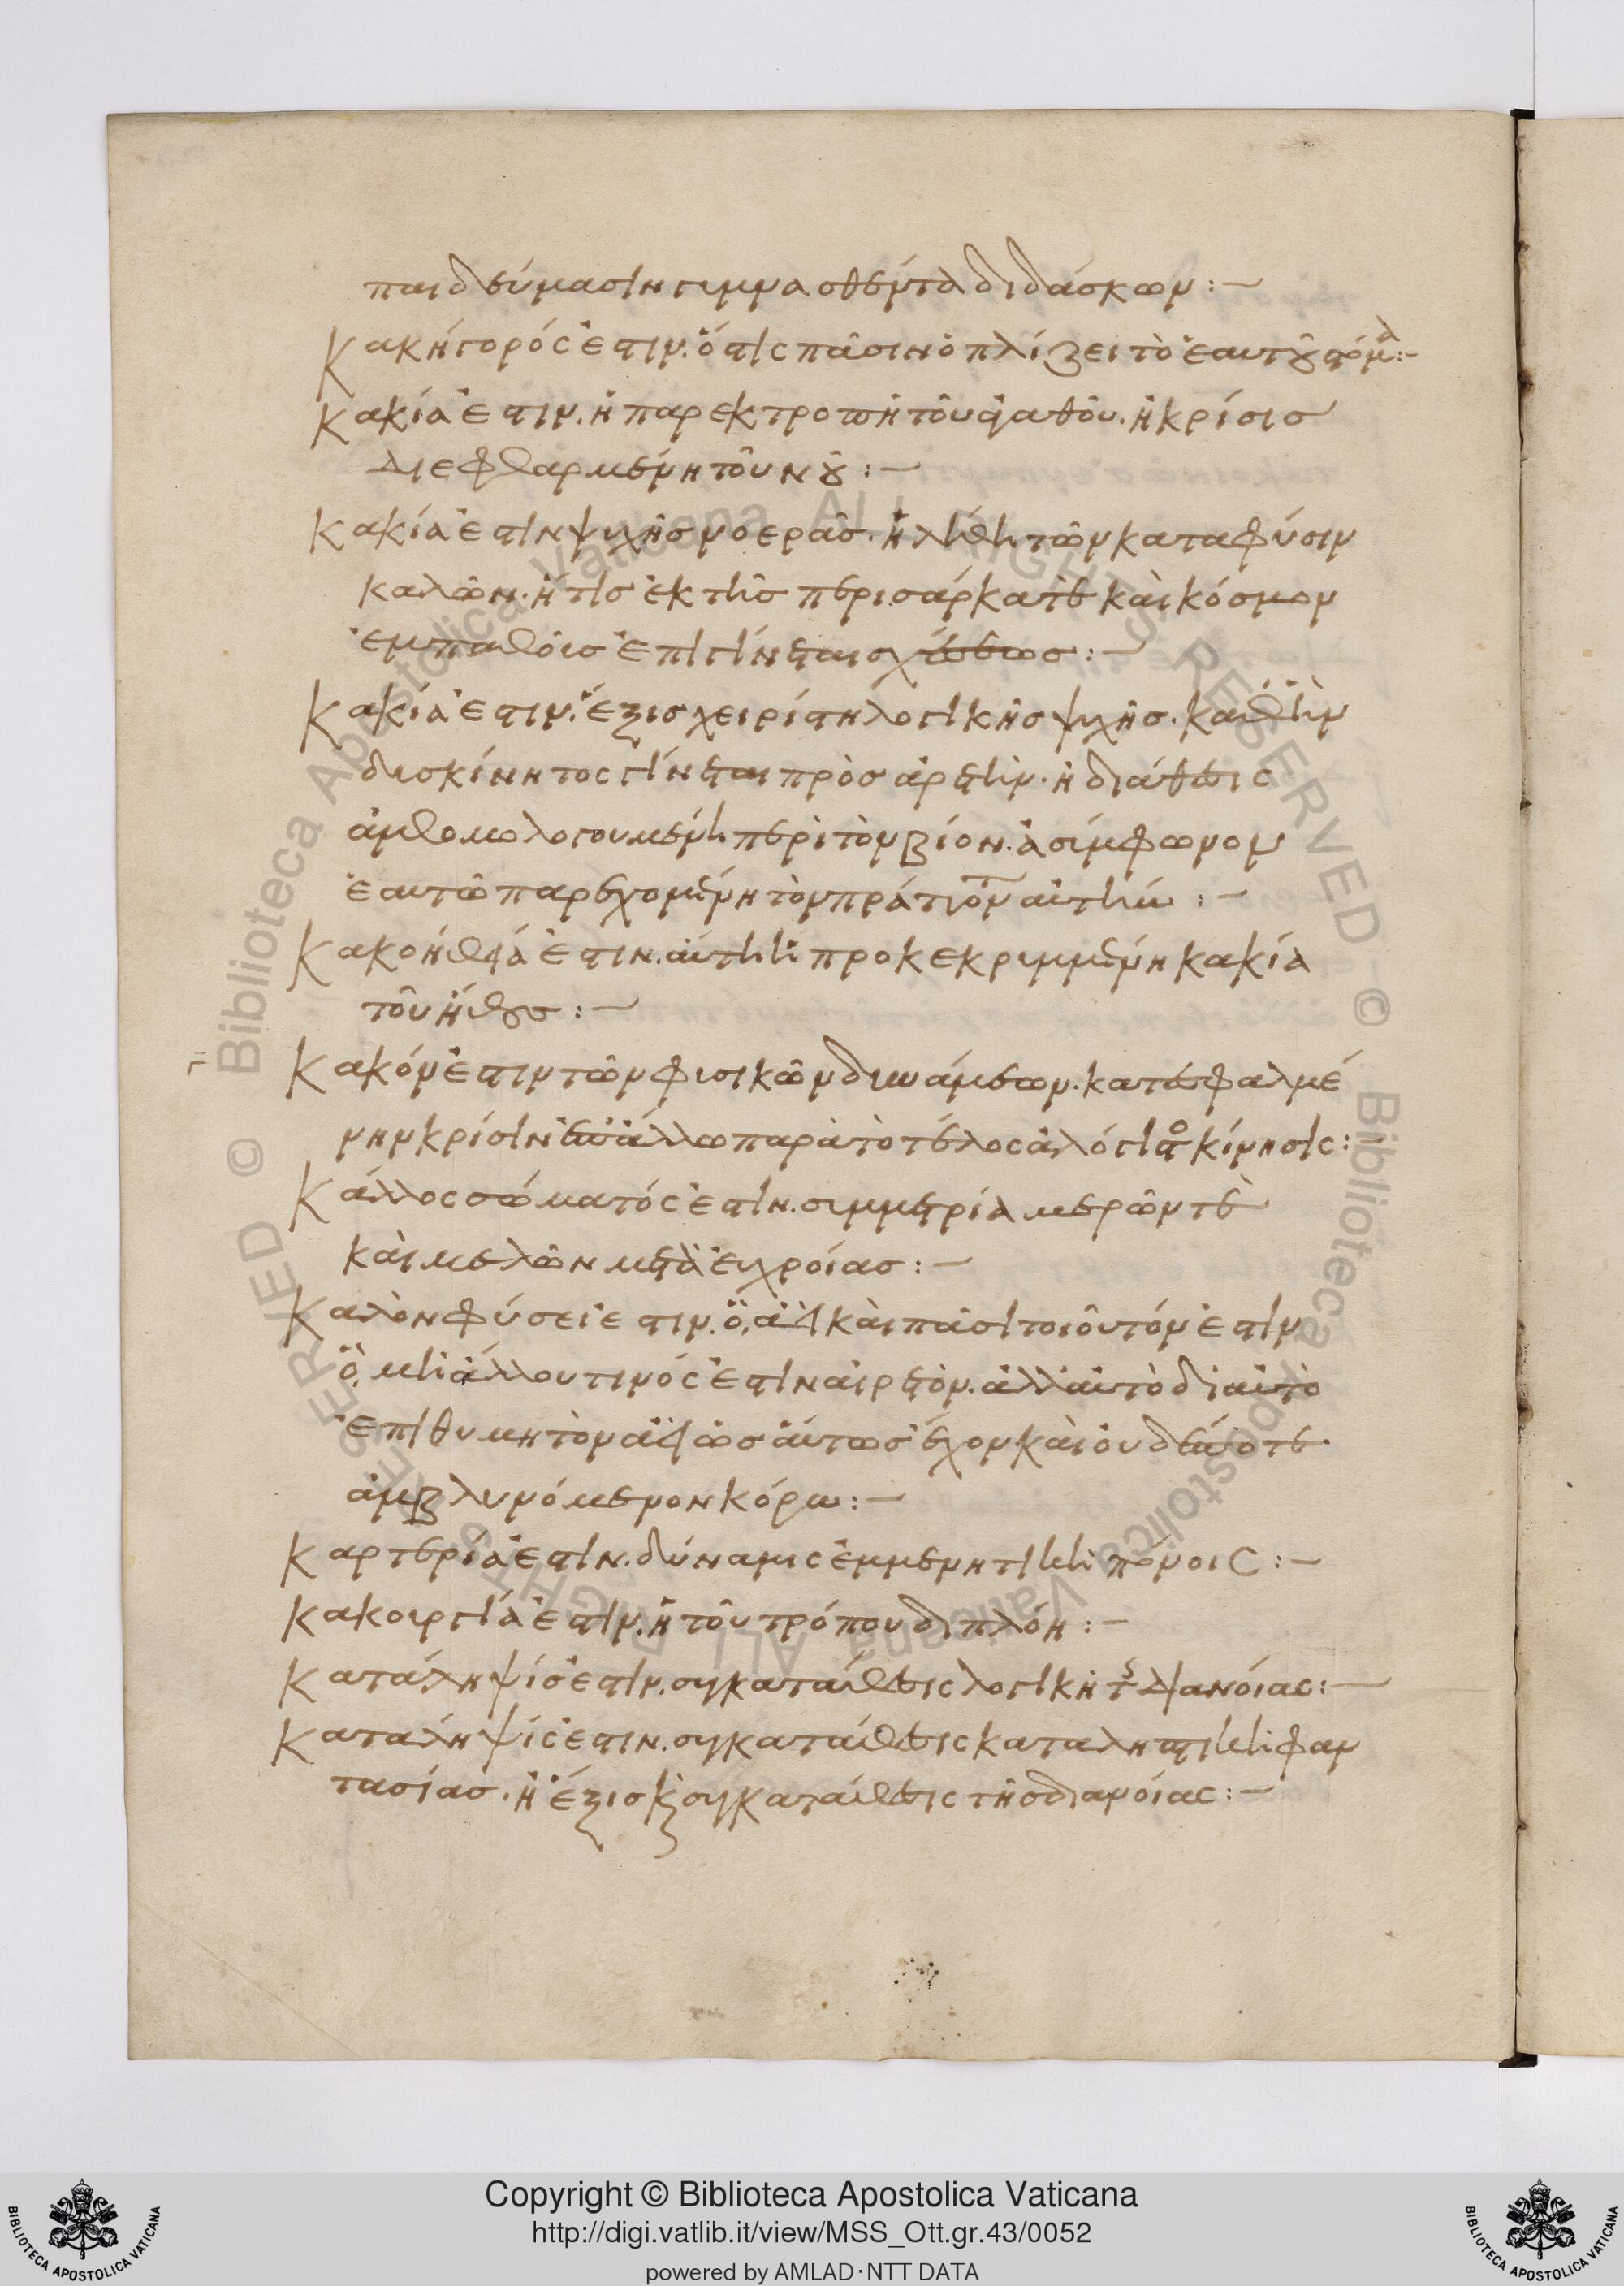 παιδεύμασιν γυμνασθέντα διδάσκων :-
Κακήγορός ἐστιν. ὅστις πᾶσιν ὁπλίζει τὸ ἑαυτοῦ στόμα :-
Κακία ἐστιν. ἡ παρεκτροπὴ τοῦ ἀγαθοῦ. ἡ κρίσις
διεφθαρμένη τοῦ νοῦ :-
Κακία ἐστὶν ψυχῆς νοερᾶς. ἡ λήθη τῶν κατα φύσιν
καλῶν. ἥτις ἐκ τῆς περι σάρκα τὲ καὶ κόσμον
ἐμπαθοῦς ἐπιγίνεται σχέσεως :-
Κακία ἐστιν. ἕξις χειρίστη λογικῆς ψυχῆς. καθ' ἣν
δυσκίνητος γίνεται πρὸς ἀρετήν. ἡ διάθεσις
ἀνθομολογουμένη περὶ τὸν βίον. ἀσύμφωνον
ἑαυτῶ παρεχομένη τὸν πράττοντα αὐτήν :-
Κακοήθειά ἐστιν. αὐτὴ ἡ προκεκριμμένη κακία
τοῦ ἤθους :-
Κακόν ἐστιν τῶν φυσικῶν δυνάμεων. κατ' ἐσφαλμέ
νην κρίσιν ἐπ' ἄλλω παρὰ τὸ τέλος ἀλόγιστος κίνησις :-
Κάλλος σώματός ἐστιν. συμμετρία μερῶν τὲ
καὶ μελῶν μετὰ εὐχροίας :-
Καλὸν φύσει ἐστιν. ὃ, ἀεὶ καὶ πᾶσι τοιοῦτόν ἐστιν
ὃ, μὴ ἄλλου τινός ἐστιν αἱρετόν. ἀλλ' αὐτὸ δι' αὐτὸ
ἐπιθυμητὸν ἀεὶ ὡσαύτως ἔχον καὶ οὐδέποτε
ἀμβλυνόμενον κόρω :-
Καρτερία ἐστιν. δύναμις ἐμμενητικὴ πόνοις :-
Κακουργία ἐστιν. ἡ τοῦ τρόπου διπλόη :-
Κατάληψίς ἐστιν. συγκατάθεσις λογικὴ τῆς διανοίας :-
Καταληψίς ἐστιν. συγκατάθεσις καταληπτικὴ φαν
τασίας. ἡ ἕξις καὶ συγκατάθεσις τῆς διανοίας :-
Copyright © Biblioteca Apostolica Vaticana
http://digi.vatlib.it/view/MSS_Ott.gr.43/0052
powered by AMLAD·NTT DATA